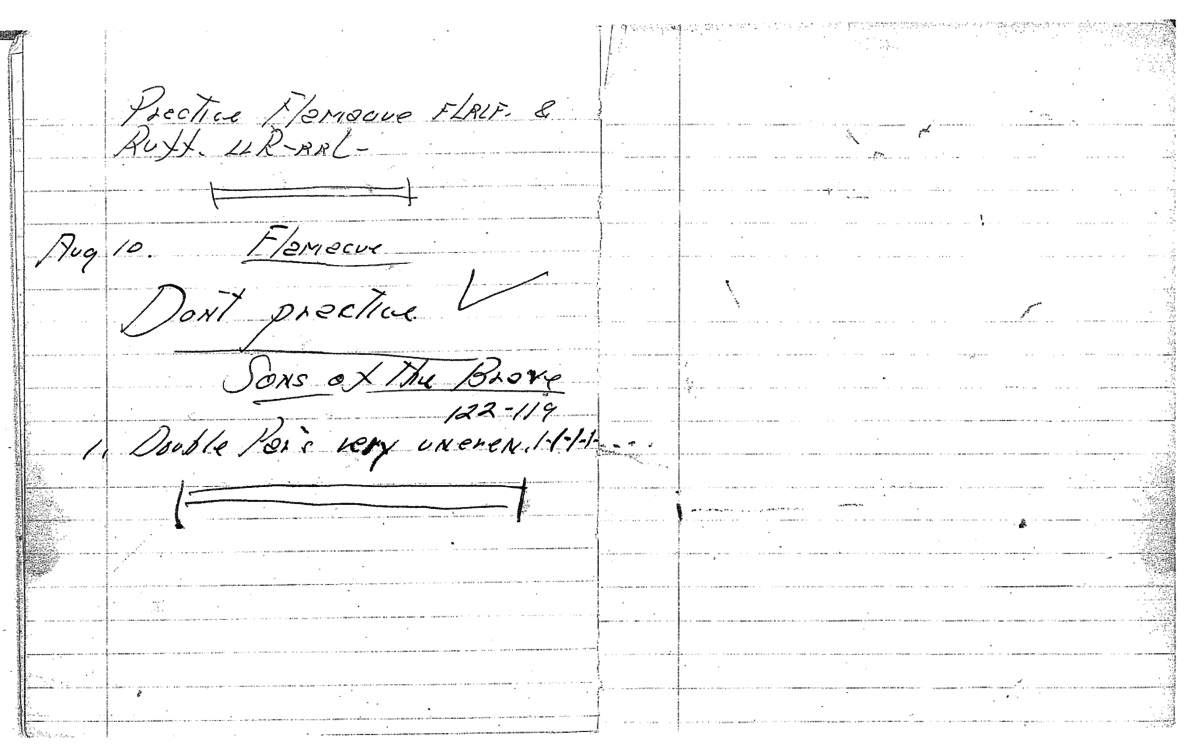 Practice Flamacue FLRLF. &
Ruff. LLR-RRL-
Aug 10. Flamacue
Dont practice ✓
Sons of the Brave
122-119
1. Double Par's very uneven.